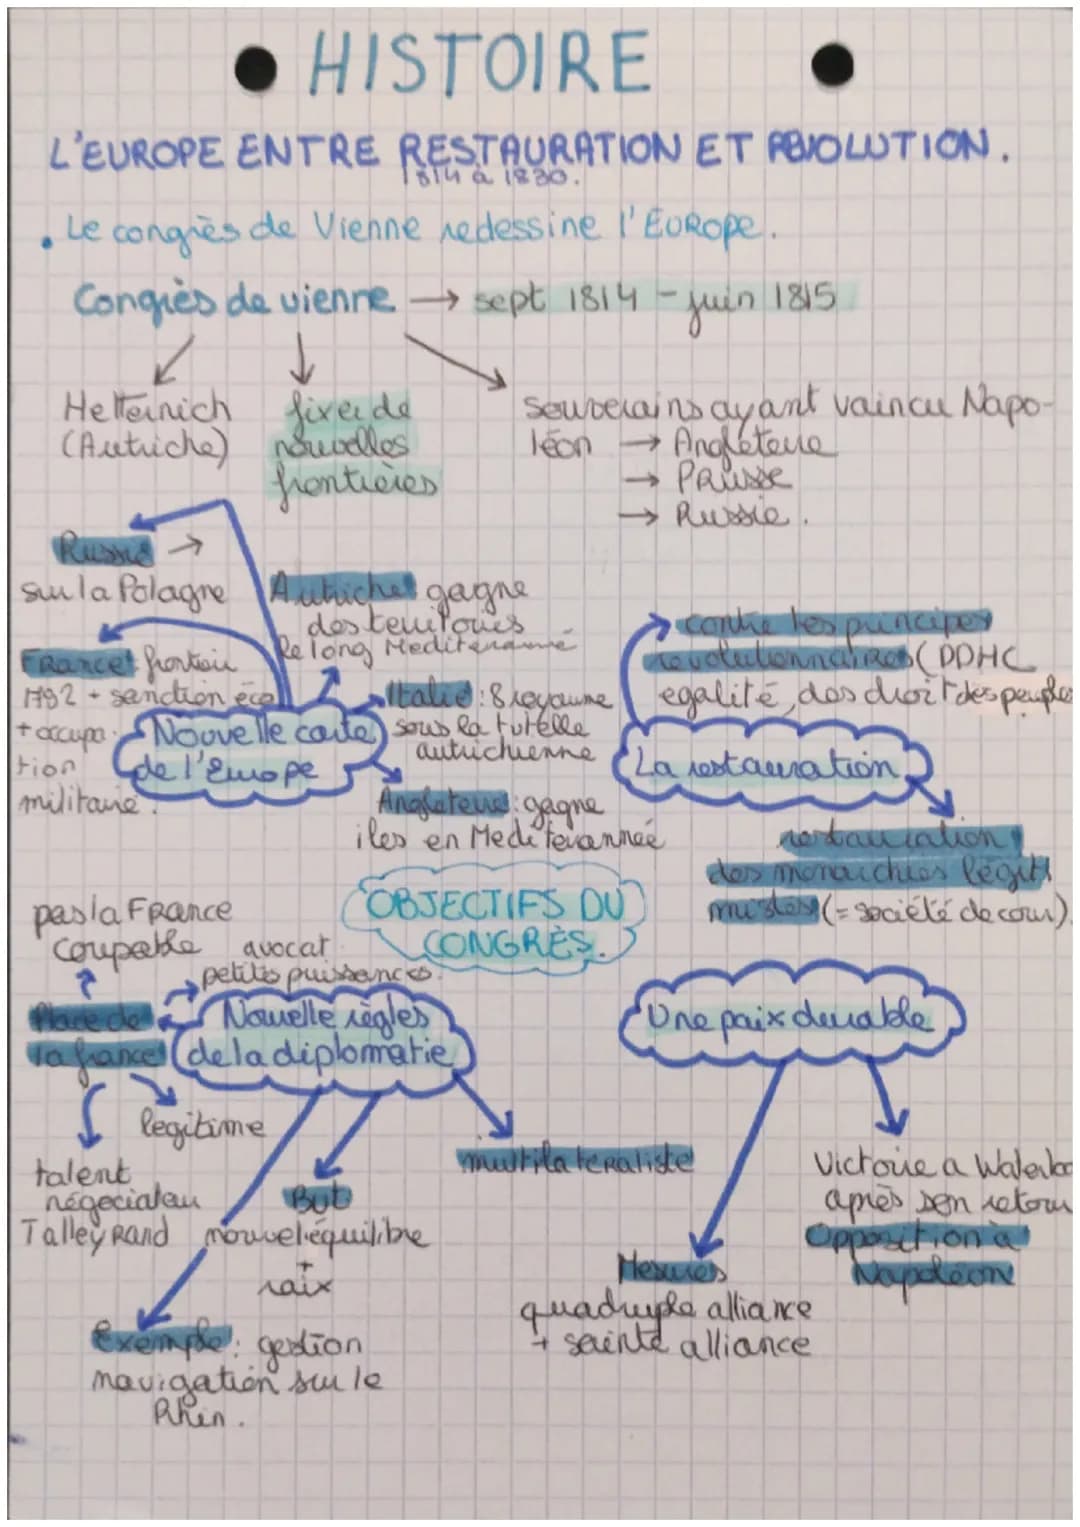 HISTOIRE
L'EUROPE ENTRE RESTAURATION ET
1814 à 1830.
. Le congrès de Vienne redessine l'EUROPE.
Congrès de vienne → sept 1814 - juin 1815
Metternich
(Autriche)
fixer de
nouvelles
frontières
souverains ayant vaincu Napo-
léon → Angleterre
→ PRUSSE
→ Russie.
Russie →
sur la Pologne
Autriche gagne
des territoires
le long
France: frontièr
1792 + sanction éco
+ occupa-
tion
militaire.
Nouvelle carte
de l'Europe
Italie: 8 royaume
sous la tutelle
autrichienne
Angleterre: gagne
iles en Mediterannée
contre les principes
revolutionnaires (DDHC
egalité, des droit des peuples
La restauration
restauration
des monarchies légiti
mistes (= société de cour).
OBJECTIFS DU
CONGRÈS.
pas la FRance
coupable
avocat
petites puissances.
Place de
la france
Nouvelle règles
de la diplomatie
legitime
talent
négociateur
TalleyRand
But
nouvel équilibre
+
paix
multilateraliste
Exemple: gestion
navigation sur le
Rhin.
Une paix durable
Mesures
quadruple alliance
+ sainte alliance
Victoire a Waterloo
après son retour
Opposition à
Napoléon